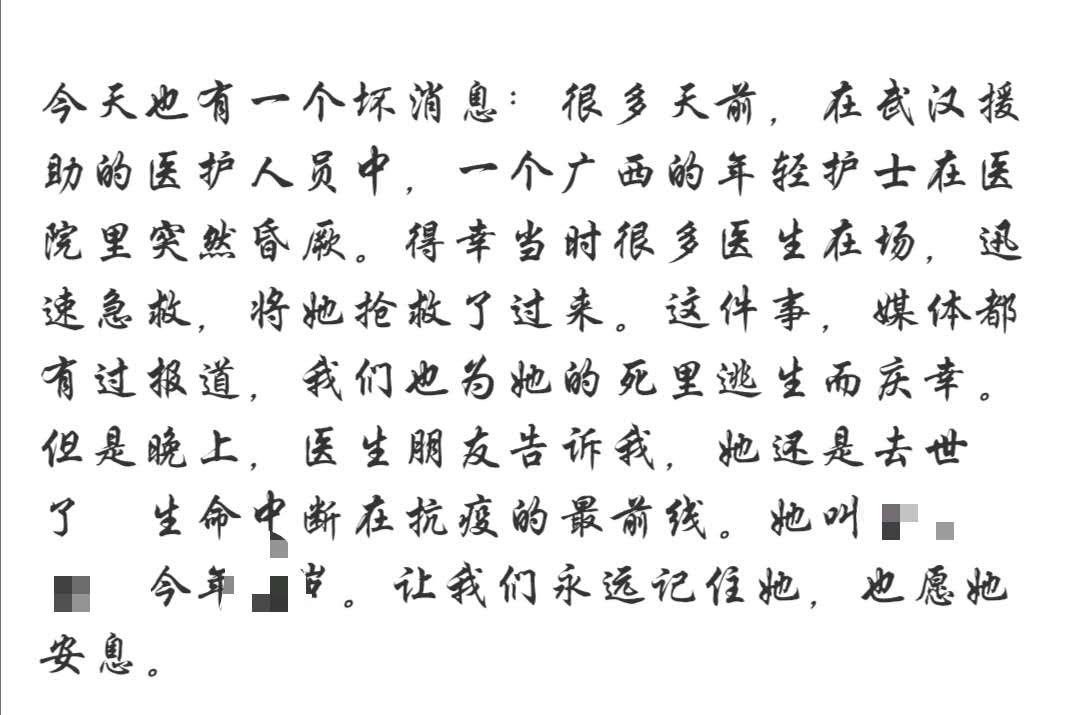 今天也有一个坏消息：很多天前，在武汉援
助的医护人员中，一个广西的年轻护士在医
院里突然昏厥。得幸当时很多医生在场，迅
速急救，将她抢救了过来。这件事，媒体都
有过报道，我们也为她的死里逃生而庆幸。
但是晚上，医生朋友告诉我，她还是去世
了 生命中断在抗疫的最前线。她叫
今年 岁。让我们永远记住她，也愿她
安息。